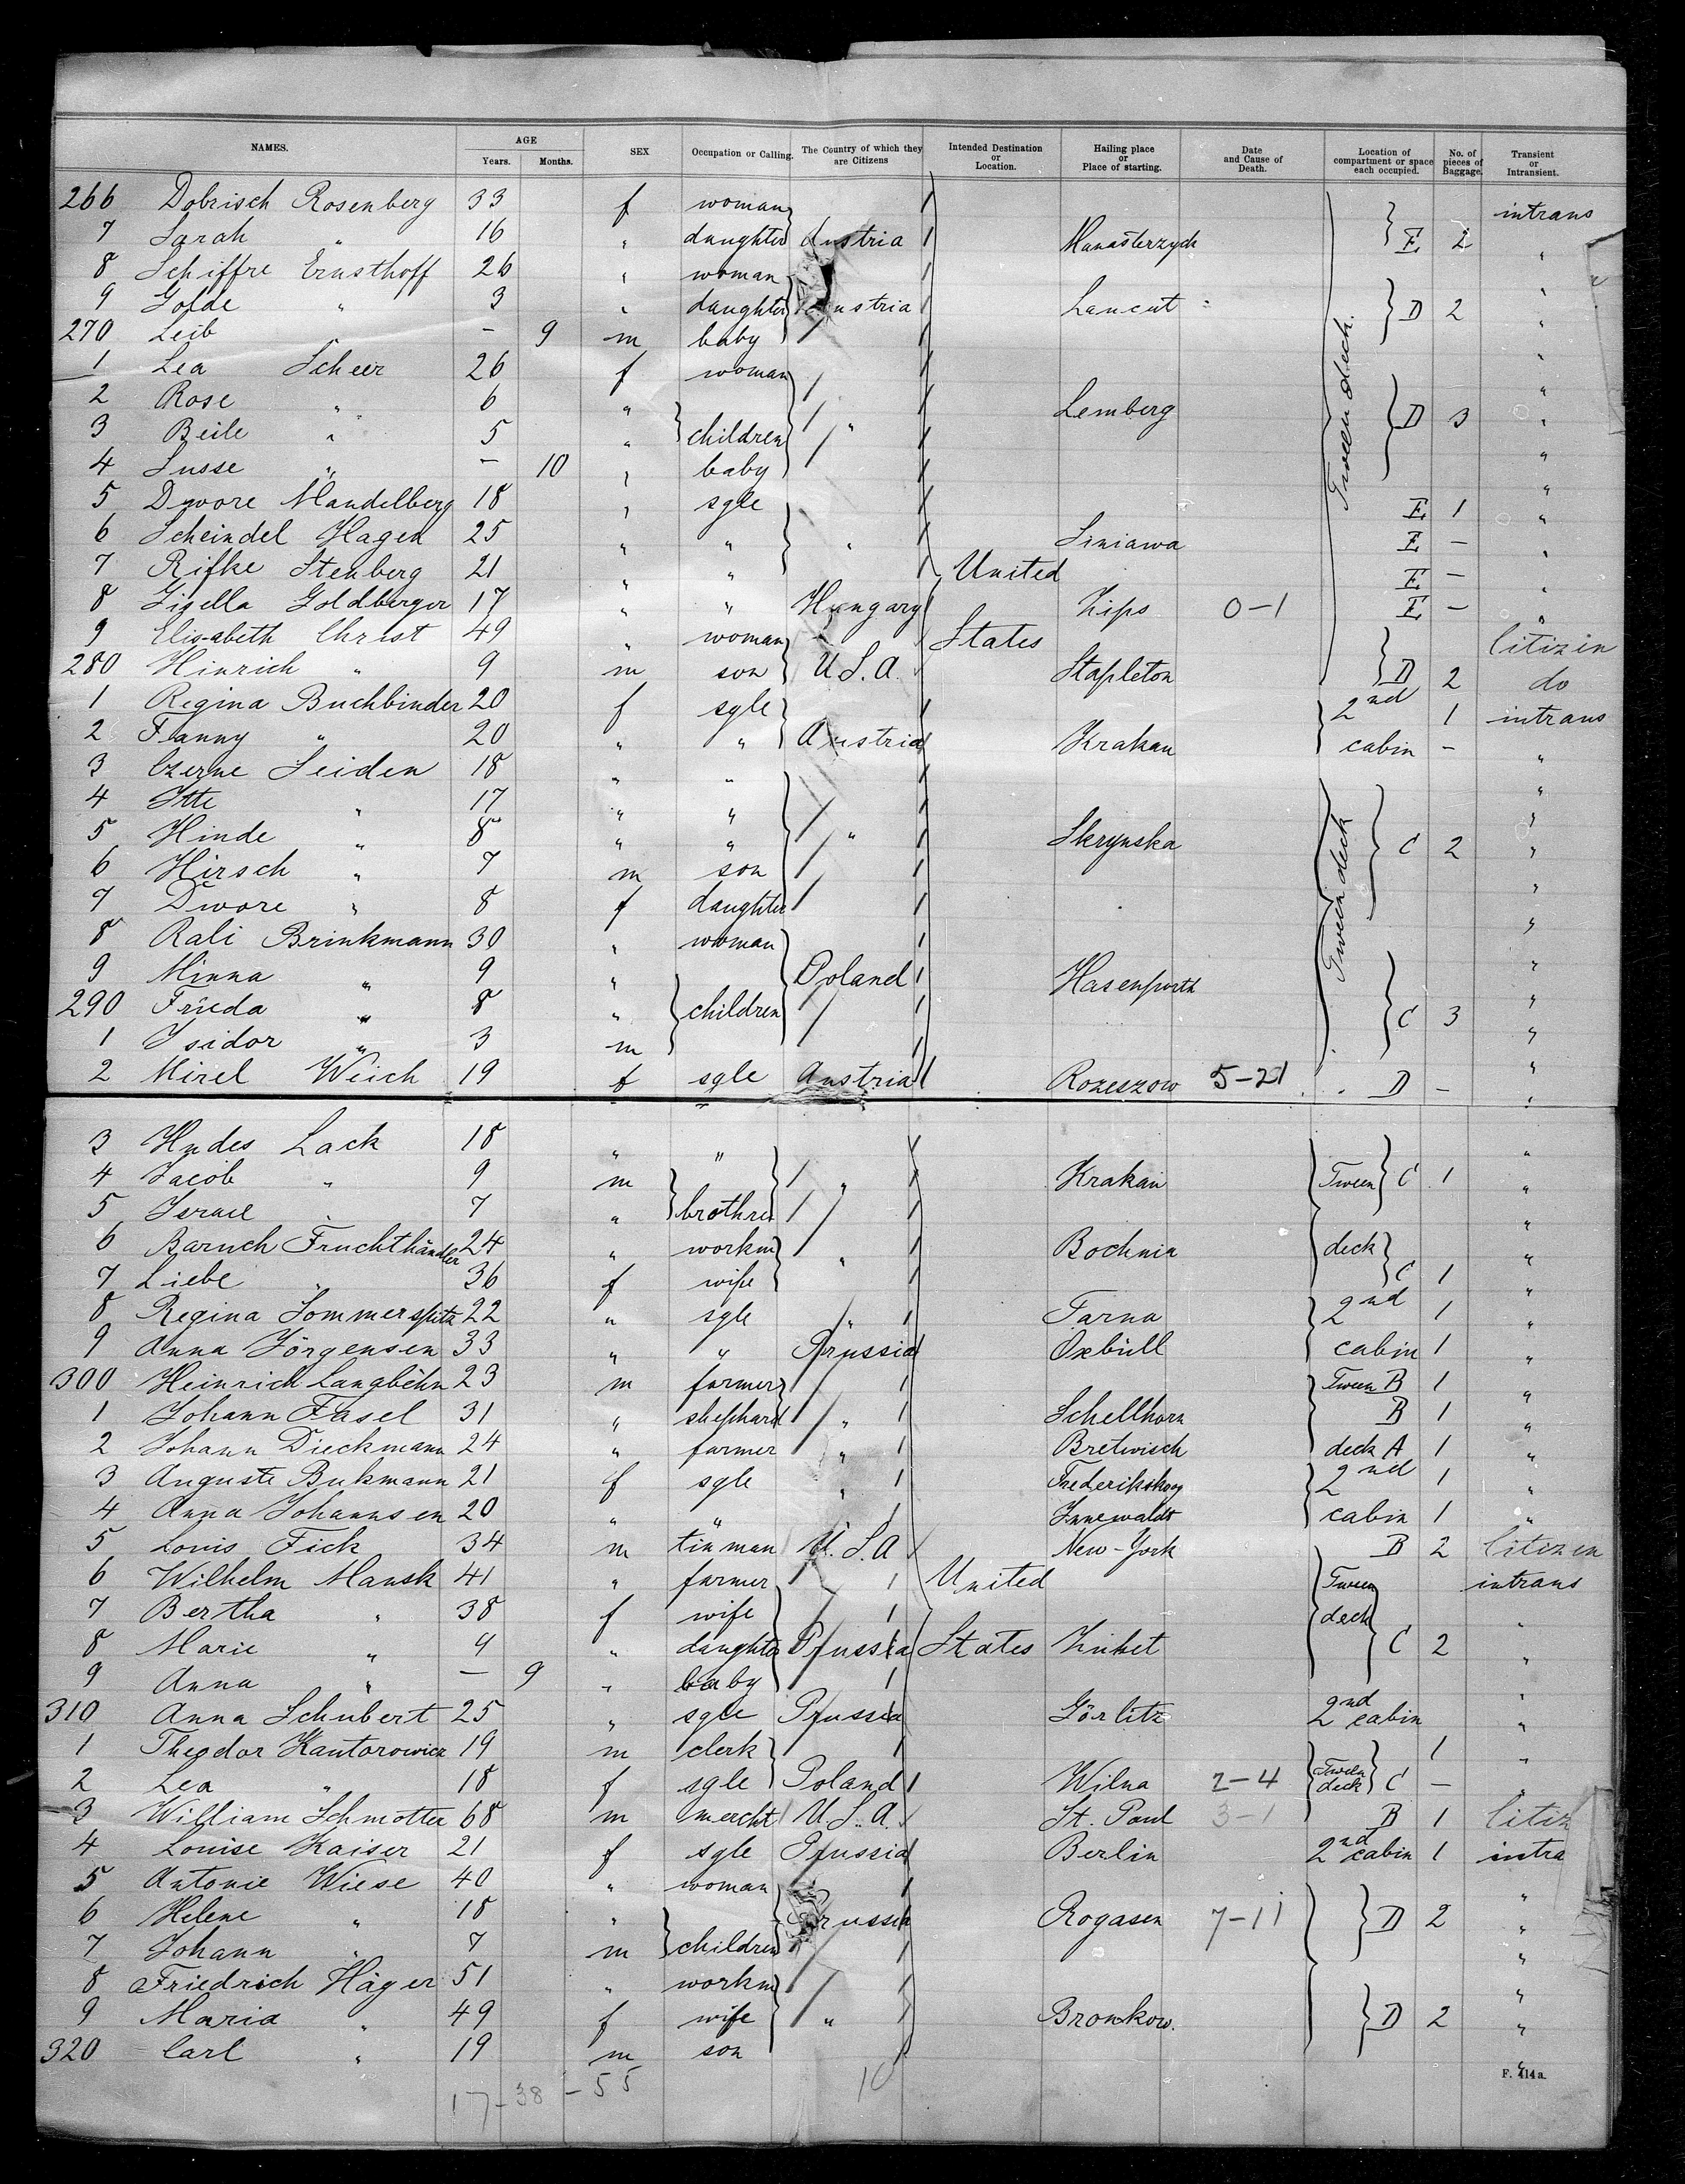 NAMES. AGE Years. Months. SEX Occupation or Calling. The Country of which they are Citizens Intended Destination or Location. Hailing place or Place of starting. Date and Cause of Death. Location of compartment or space each occupied. No. of pieces of Baggage. Transient or Intransient.
266 Dobrisch Rosenberg 33 f woman intrans
7 Sarah " 16 " daughter Austria Manasterzych E 2 "
8 Schiffre Ernsthoff 26 " woman "
9 Golde " 3 " daughter Austria Lancut D 2 "
270 Leib - 9 m baby "
1 Lea Scheer 26 f woman "
2 Rose " 6 " Lemberg D 3 "
3 Beile " 5 " children " "
4 Susse " - 10 " baby "
5 Dwore Mandelberg 18 " sgle E 1 "
6 Scheindel Hagen 25 " " " Siniawa E - "
7 Rifke Stenberg 21 " " United E - "
8 Gisella Goldberger 17 " " Hungary Zips 0-1 E - "
9 Elisabeth Christ 49 " woman States Citizen
280 Hinrich " 9 m son U.S.A. Stapleton D 2 do
1 Regina Buchbinder 20 f sgle 2nd 1 intrans
2 Fanny " 20 " " Austria Krakau cabin - "
3 Czerne Seiden 18 " " "
4 Itte " 17 " " "
5 Hinde " 8 " " " Skrynska Tween deck C 2 "
6 Hirsch " 7 m son "
7 Dwore " 8 f daughter "
8 Rali Brinkmann 30 " woman "
9 Minna " 9 " Poland Hasenpurth "
290 Frieda " 8 " children C 3 "
1 Isidor " 3 m "
2 Mirel Weich 19 f sgle Austria Rozeszow 5-21 D - "
3 Hudes Lack 18 " " "
4 Jacob " 9 m " Krakau Tween C 1 "
5 Israel " 7 " brothrs "
6 Baruch Fruchthändler 24 " workm " Bochnia deck "
7 Liebe " 36 f wife C 1 "
8 Regina Sommerspitz 22 " sgle " Tarna 2nd 1 "
9 Anna Jörgensen 33 " " Prussia Oxbüll cabin 1 "
300 Heinrich Langbehn 23 m farmer Tween B 1 "
1 Johann Fasel 31 " shephard " Schellhorn B 1 "
2 Johann Dieckmann 24 " farmer " Bretwisch deck A 1 "
3 Auguste Bukmann 21 f sgle " Frederikskoog 2nd 1 "
4 Anna Johannsen 20 " " Innewaldt cabin 1 "
5 Louis Fick 34 m tinman U.S.A New-York B 2 Citizen
6 Wilhelm Mansk 41 " farmer United Tween intrans
7 Bertha " 38 f wife deck "
8 Marie " 4 " daughter Prussia States C 2 "
9 Anna " - 9 " baby "
310 Anna Schubert 25 " sgle Prussia Görlitz 2nd cabin "
1 Theodor Kantorowicz 19 m clerk 1 "
2 Lea " 18 f sgle Poland Wilna 2-4 Tween deck C - "
3 William Schmotter 68 m mercht U.S.A. St. Paul 3-1 B 1 Citiz
4 Louise Kaiser 21 f sgle Prussia Berlin 2nd cabin 1 intra
5 Antonie Wiese 40 " woman "
6 Helene " 18 " Prussia Rogasen 7-11 D 2 "
7 Johann " 7 m children "
8 Friedrich Häger 51 " workm "
9 Maria " 49 f wife " Bronkow. D 2 "
320 Carl " 19 m son "
17-38-55 10
F. 414a.